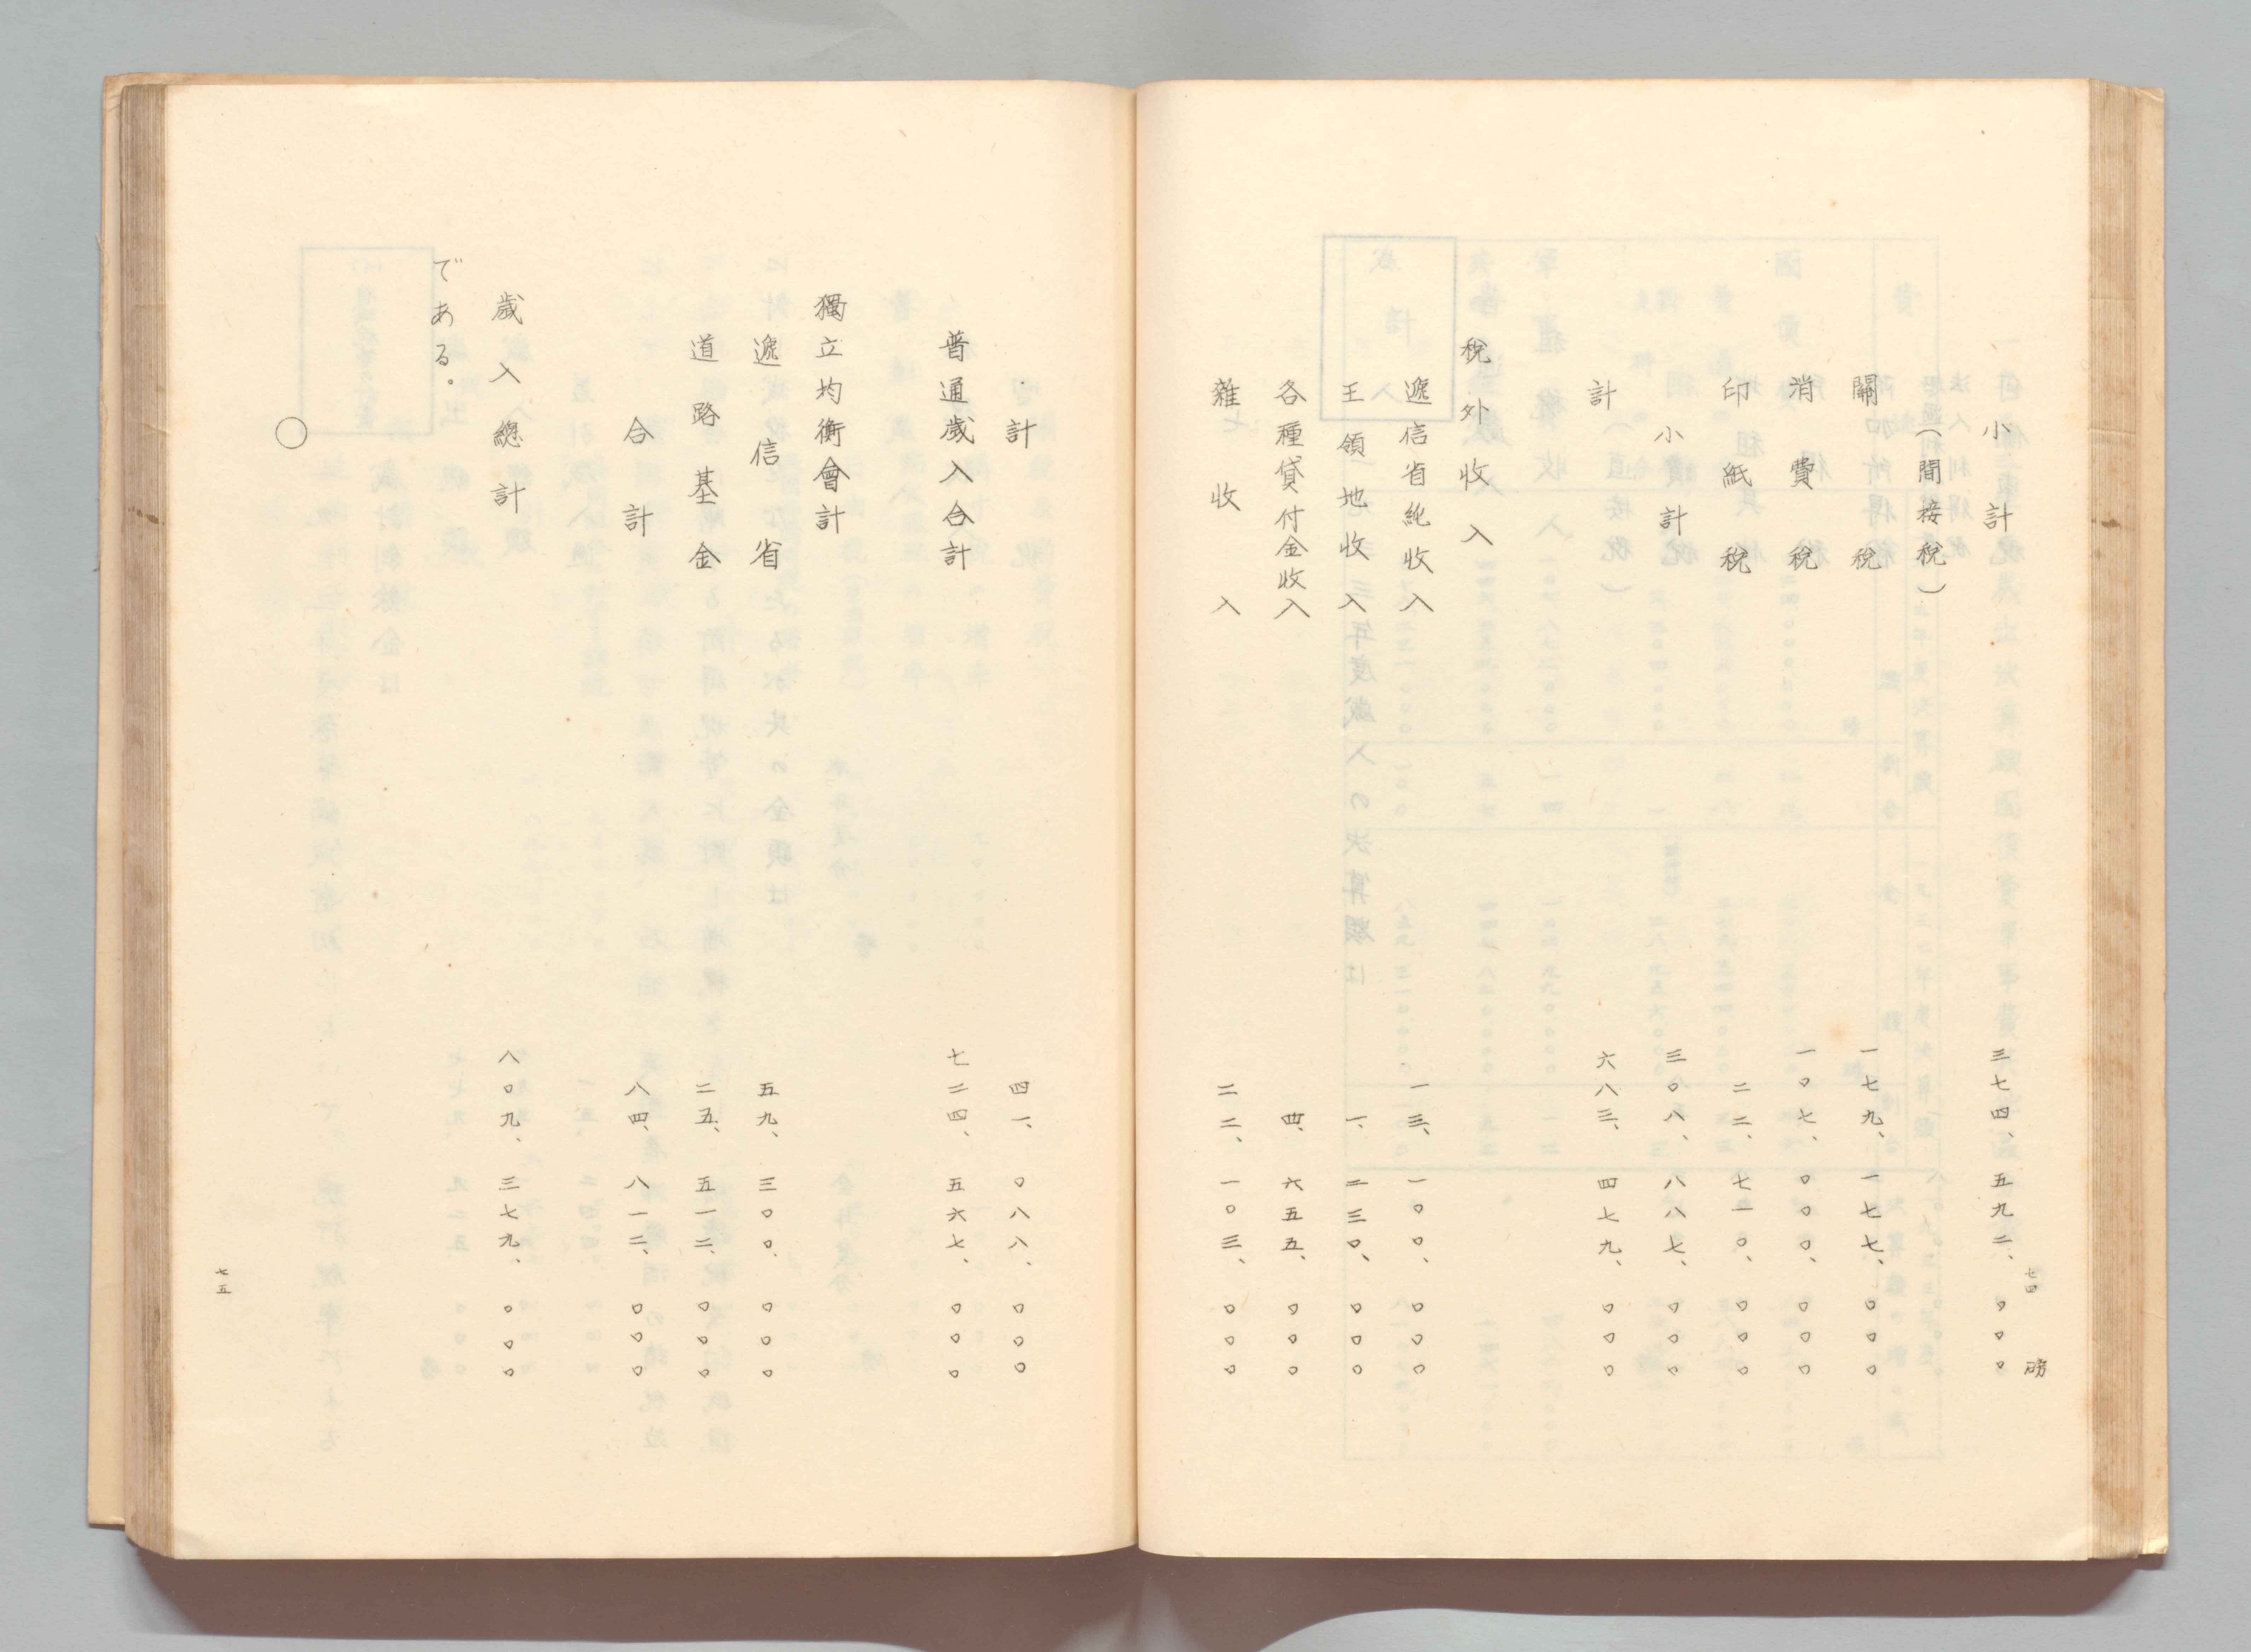 小計 三七四、五九二、〇〇〇磅
(間接稅)
關稅 一七九、一七七、〇〇〇
消費稅 一〇七、〇〇〇、〇〇〇
印紙稅 二二、七一〇、〇〇〇
小計 三〇八、八八七、〇〇〇
計 六八三、四七九、〇〇〇
稅外收入
遞信省純收入 一三、一〇〇、〇〇〇
王領地收入 一、二三〇、〇〇〇
各種貸付金收入 四、六五五、〇〇〇
雜收入 二二、一〇三、〇〇〇
七四
計 四一、〇八八、〇〇〇
普通歲入合計 七二四、五六七、〇〇〇
獨立均衡會計
遞信省 五九、三〇〇、〇〇〇
道路基金 二五、五一二、〇〇〇
合計 八四、八一二、〇〇〇
歲入總計 八〇九、三七九、〇〇〇
である。
〇
七五